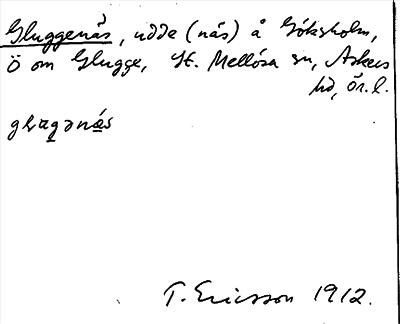 Gluggenäs, udde (näs) å Göksholm,
Ö om Glugge, St. Mellösa sn, Askers
hd, Ör. l.
T. Ericsson 1912.